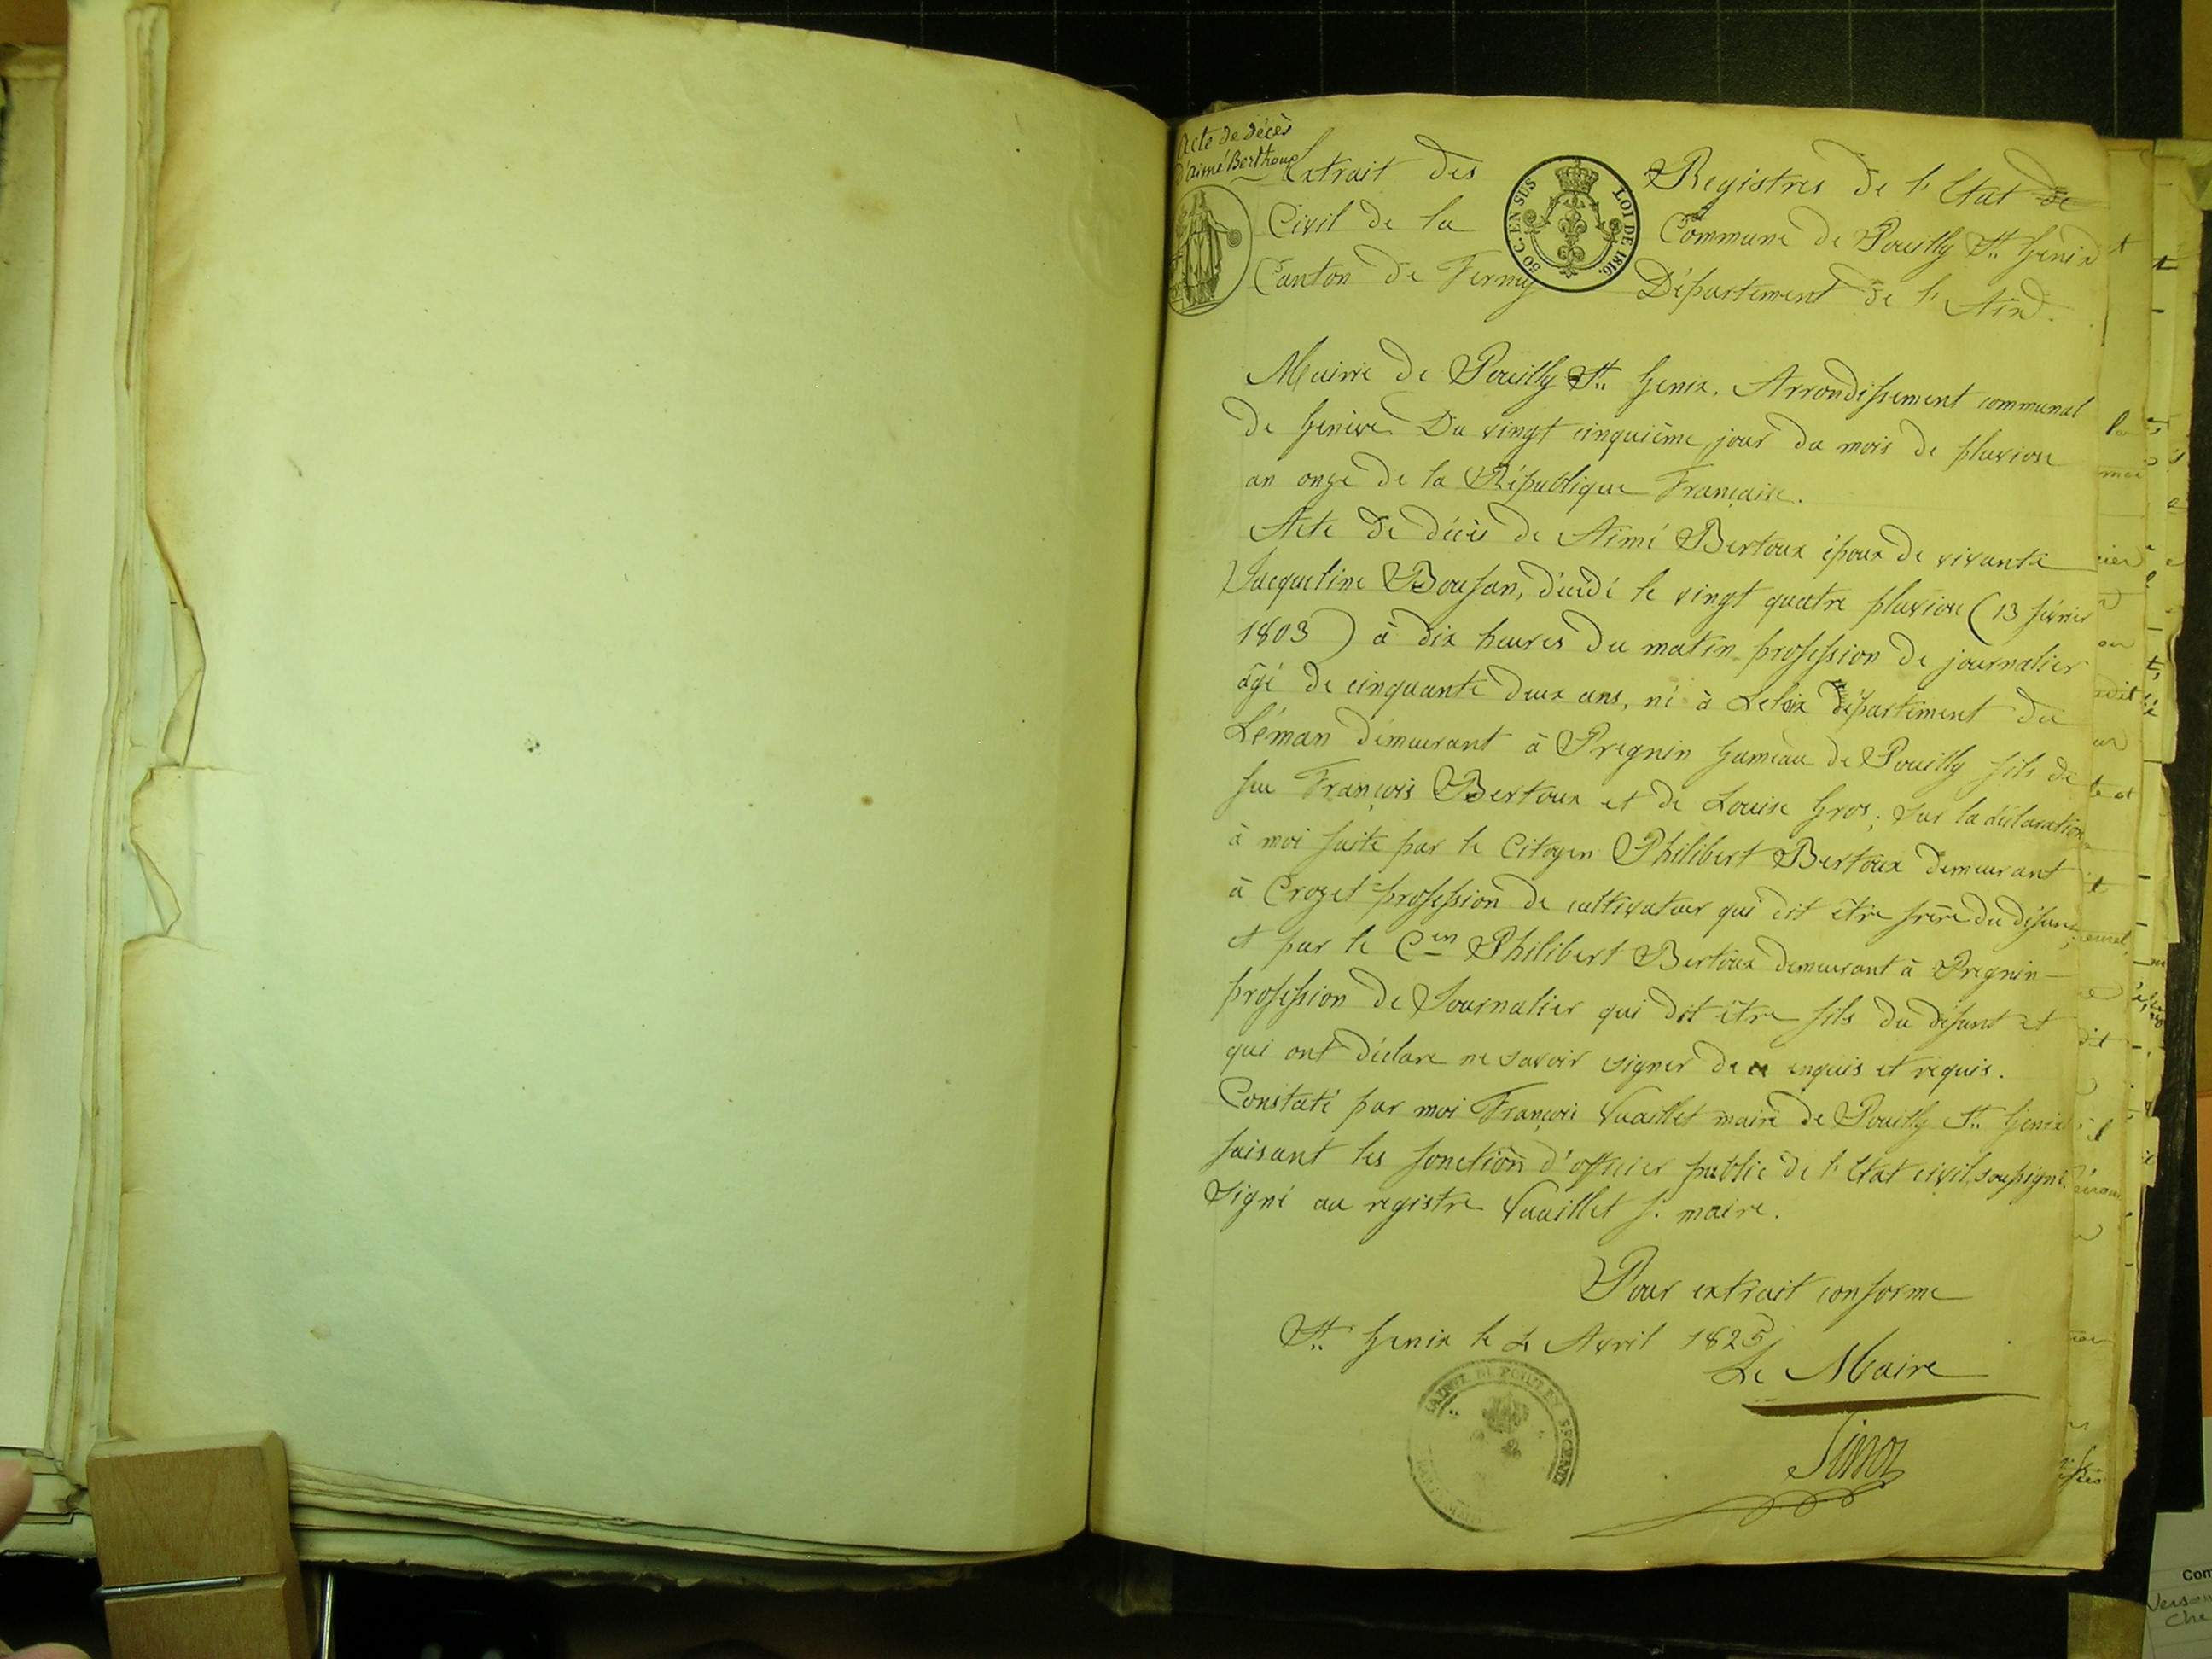 Acte de décès
d'Aimé Berthoux
Extrait des Registres de l'Etat de
Civil de la Commune de Pouilly St. Genix
Canton de Ferney Département de l'Ain.
50 C. EN SUS LOI DE 1816.
Mairie de Pouilly St. Genix. Arrondissement communal
de Genève Du vingt cinquième jour du mois de pluviose
an onze de la République Française.
Acte de décès de Aimé Bertoux époux de vivante
Jacqueline Bousan, décédé le vingt quatre pluviose (13 février
1803) à dix heures du matin profession de journalier
âgé de cinquante deux ans, né à Lelex département du
Léman demeurant à Pregnin hameau de Pouilly fils de
feu François Bertoux et de Louise Gros; sur la déclaration
à moi faite par le Citoyen Philibert Bertoux demeurant
à Crozet profession de cultivateur qui dit être frère du défunt
et par le Cen Philibert Bertoux demeurant à Pregnin
profession de Journalier qui dit être fils du défunt et
qui ont déclaré ne savoir signer de ce enquis et requis.
Constaté par moi François Vuaillet maire de Pouilly St. Genix
faisant les fonction d'officier public de l'Etat civil, soussigné.
Signé au registre Vuaillet f. maire.
Pour extrait conforme
St. Genix le 4 Avril 1825
Le Maire